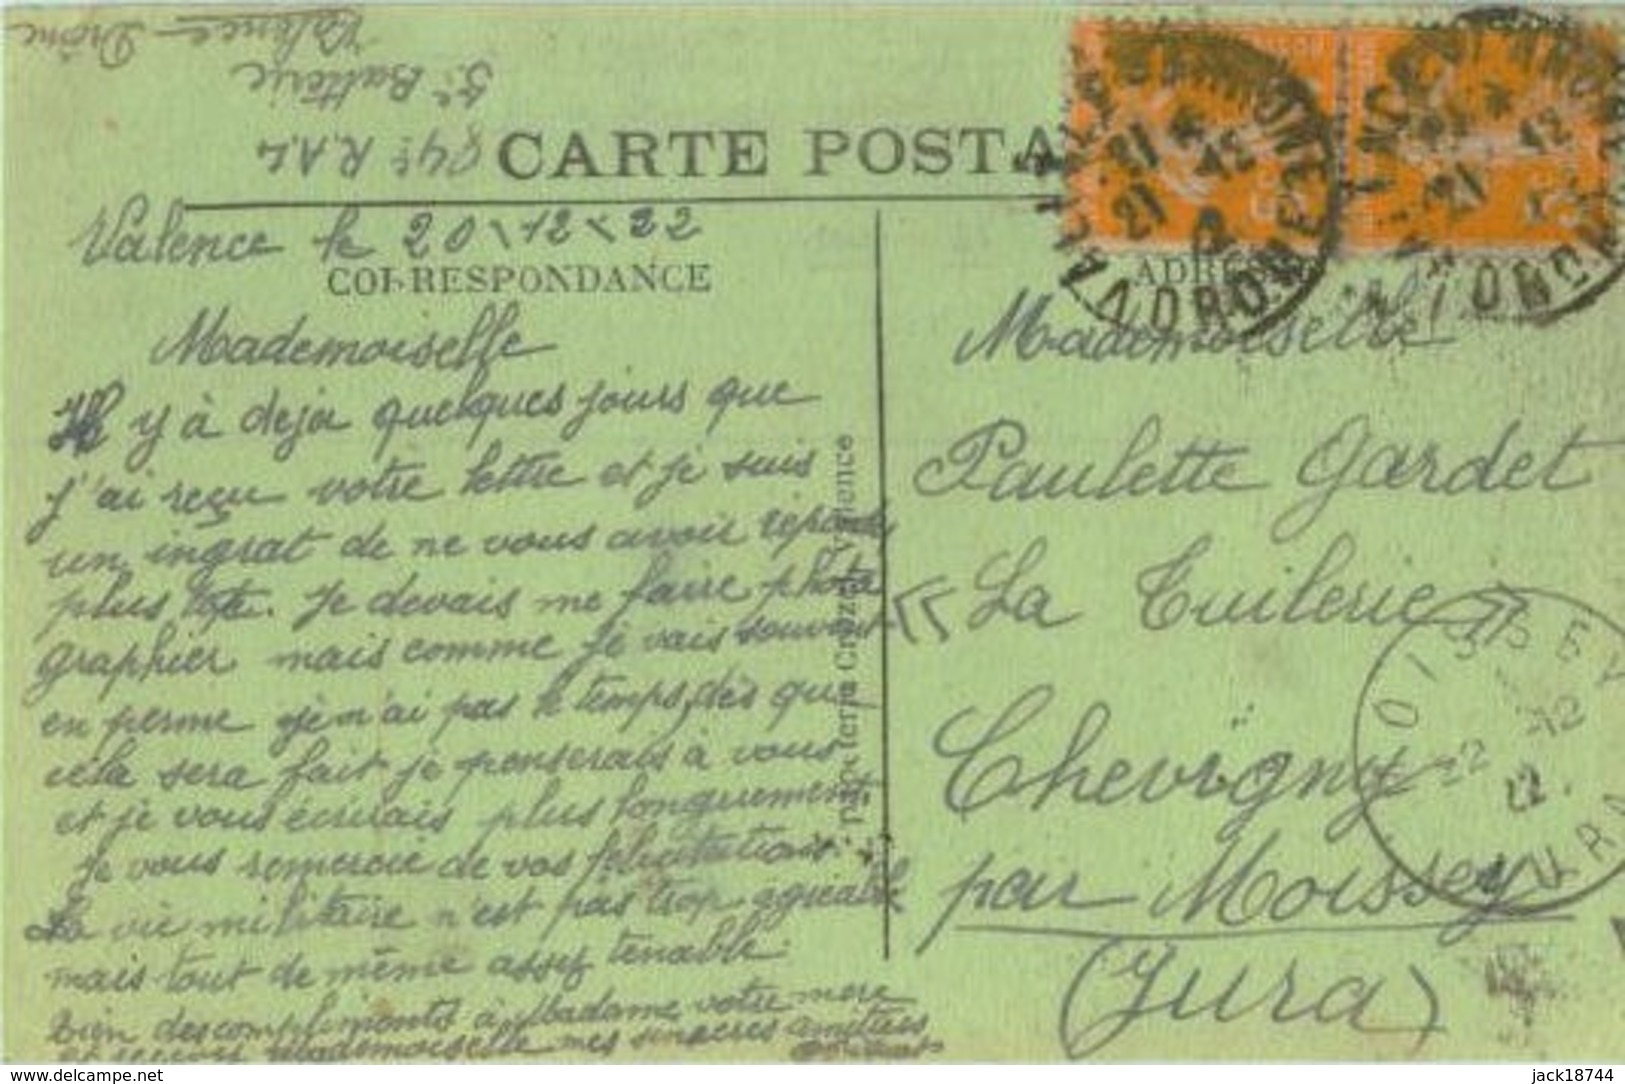 Valence Drôme
5e Batterie
84e R.A.L
CARTE POSTA
Valence le 20\12\22
CORRESPONDANCE
Mademoiselle
Il y à deja quelques jours que
j'ai reçu votre lettre et je suis
un ingrat de ne vous avoir répondu
plus tôt. Je devais me faire photo
graphier mais comme je vais souvent
en perme je n'ai pas le temps, dès que
cela sera fait je penserais à vous
et je vous écrirais plus longuement
Je vous remercie de vos félicitations
La vie militaire n'est pas trop agréable
mais tout de même assez tenable.
Bien des compliments à Madame votre mère
et recevez Mademoiselle mes sincères amitiés
ADRESSE
Mademoiselle
Paulette Gardet
« La Tuilerie »
Chevigny
par Moissey
(Jura)
VALENCE
DROME
21
12
21
12
DROME
MOISSEY
22 -12
22
JURA
www.delcampe.net
jack18744